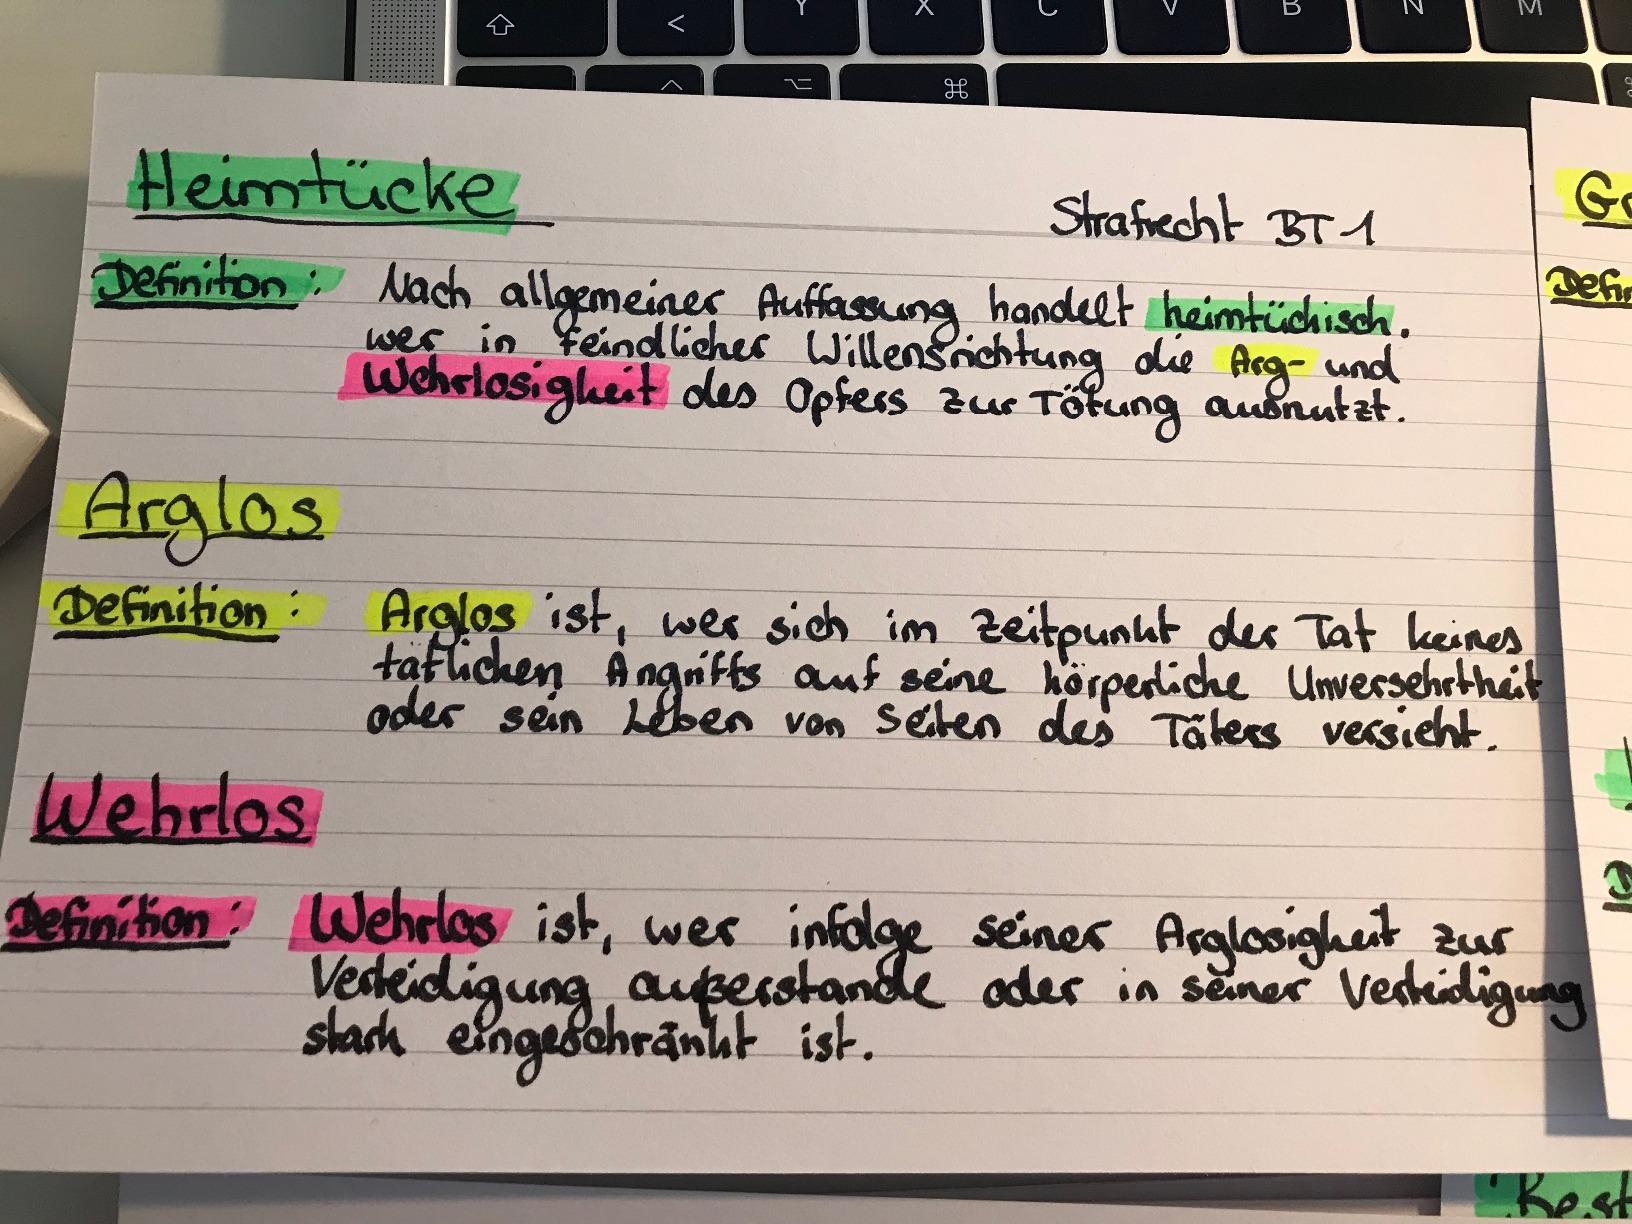 Y X C V B N M
<
⌘
Heimtücke
Strafrecht BT 1
Definition: Nach allgemeiner Auffassung handelt heimtückisch,
wer in feindlicher Willensrichtung die Arg- und
Wehrlosigkeit des Opfers zur Tötung ausnutzt.
Arglos
Definition: Arglos ist, wer sich im Zeitpunkt der Tat keines
tätlichen Angriffs auf seine körperliche Unversehrtheit
oder sein Leben von Seiten des Täters versieht.
Wehrlos
Definition: Wehrlos ist, wer infolge seiner Arglosigkeit zur
Verteidigung außerstande oder in seiner Verteidigung
stark eingeschränkt ist.